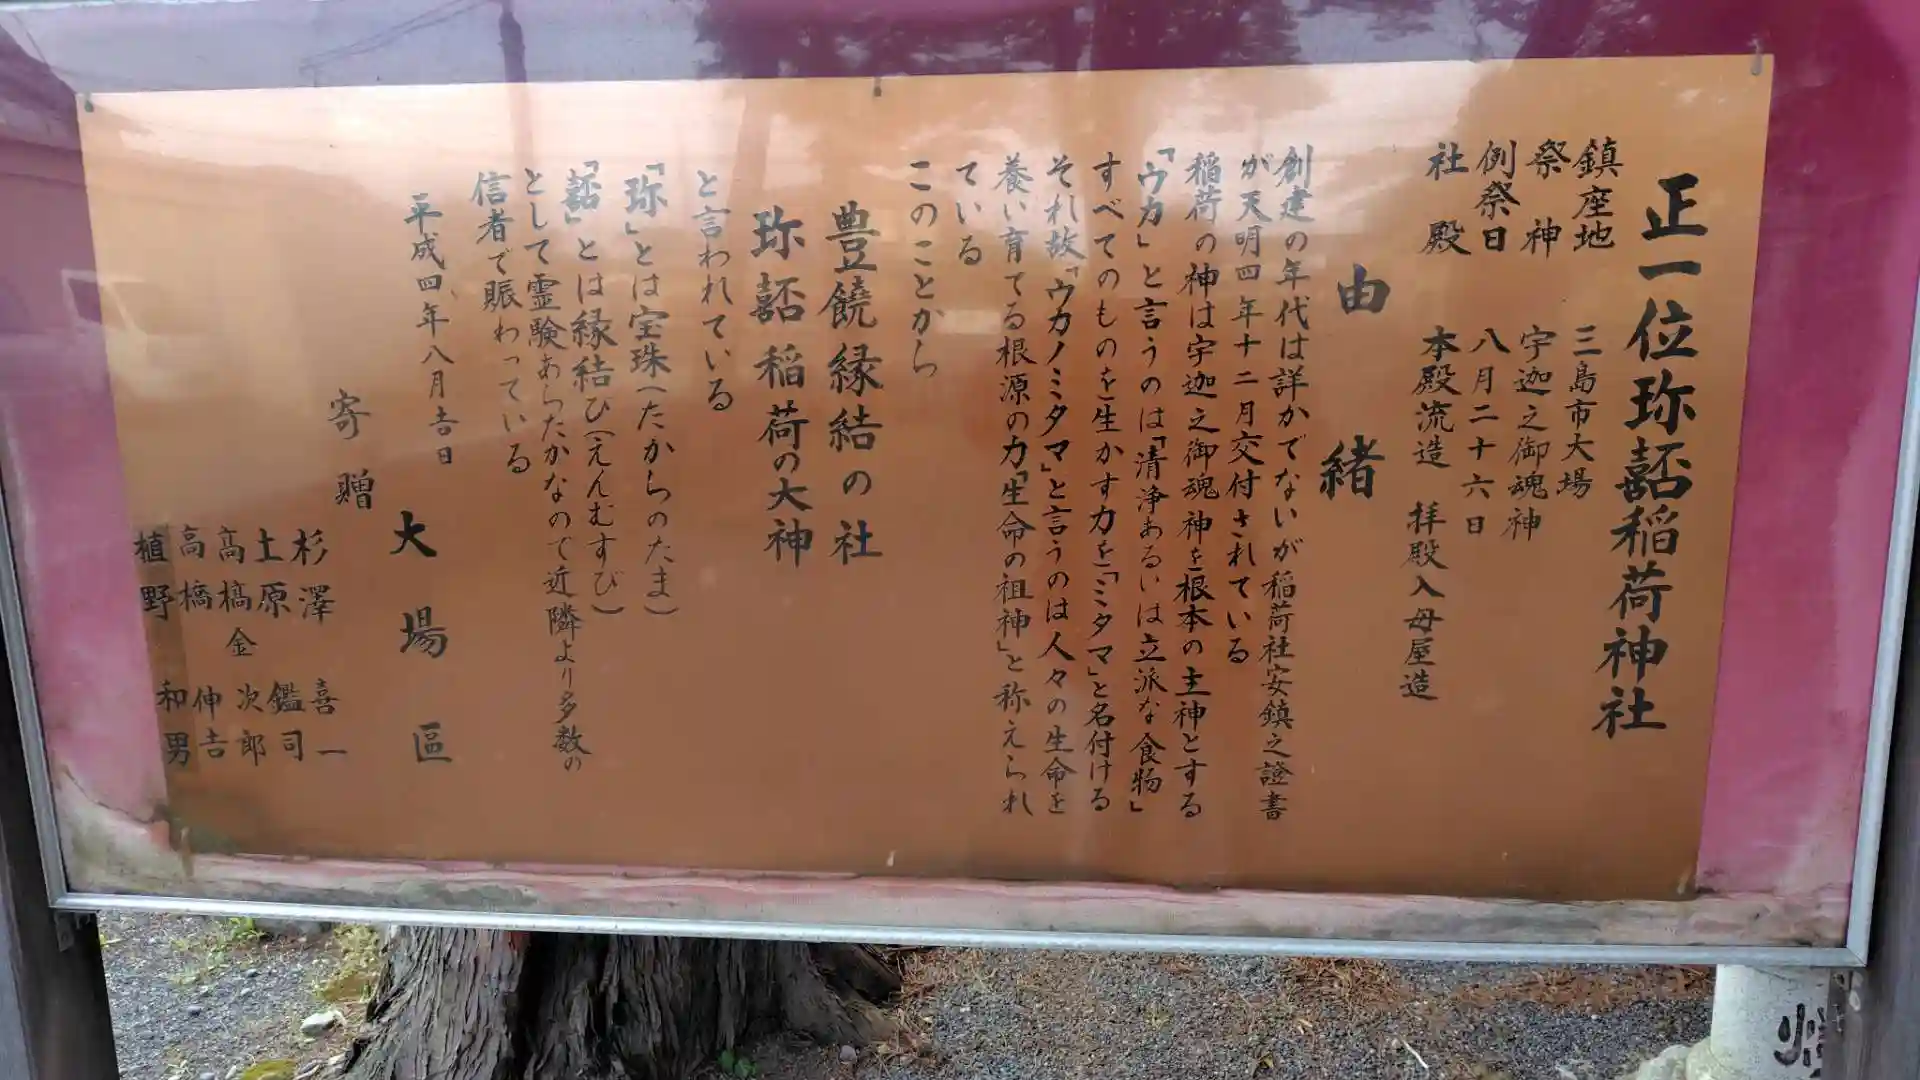 正一位珎嚭稲荷神社
鎮座地 三島市大場
祭神 宇迦之御魂神
例祭日 八月二十六日
社殿 本殿流造 拝殿入母屋造
由緒
創建の年代は詳かでないが稲荷社安鎮之證書
が天明四年十二月交付されている
稲荷の神は宇迦之御魂神を根本の主神とする
「ウカ」と言うのは「清浄あるいは立派な食物」
すべてのものを生かす力を「ミタマ」と名付ける
それ故「ウカノミタマ」と言うのは人々の生命を
養い育てる根源の力「生命の祖神」と称えられ
ている
このことから
豊饒縁結の社
珎嚭稲荷の大神
と言われている
「珎」とは宝珠(たからのたま)
「嚭」とは縁結び(えんむすび)
として霊験あらたかなので近隣より多数の
信者で賑わっている
平成四年八月吉日
大場區
寄贈
杉澤喜一
土原鑑司
髙橋金次郎
高橋伸吉
植野和男